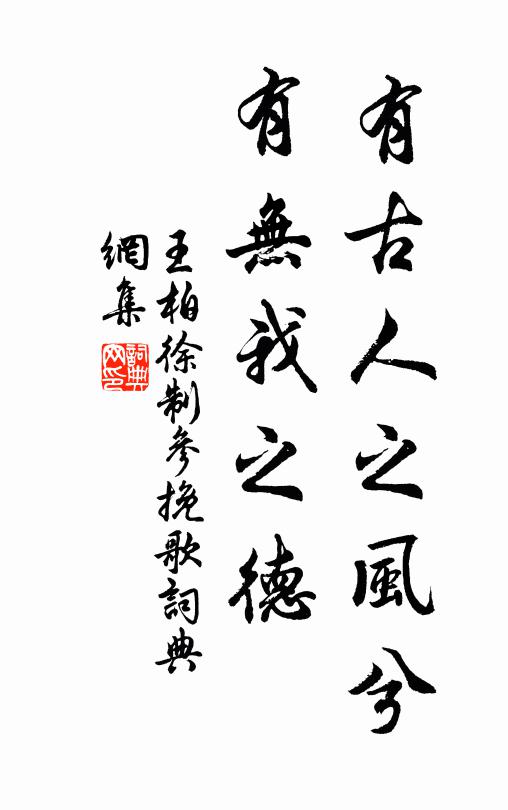 有古人之風兮
有無我之德
王柏徐制參挽歌詞典
網集
詞典網印